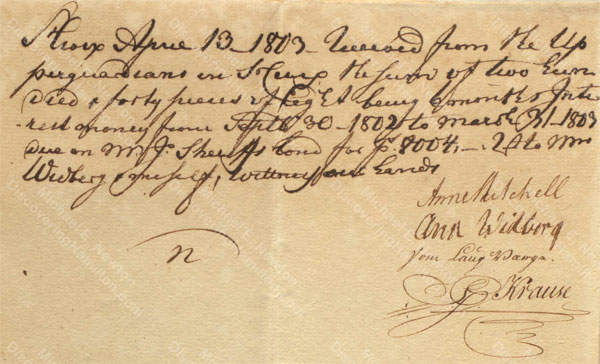 St Croix April 13 - 1803 - Received from the Up
perguardians in St Croix the sum of two hun
dred & forty pieces of Eight being 6 months Inte
rest money from Septb 30 - 1802 to march 31 - 1803
due on Mr Js Sheriffs bond for Ps. 8004, — to Mrs
Widberg & myself, wittness our hands
Ann Mitchell
Ann Widberg
som Laug Værge.
Krause
n